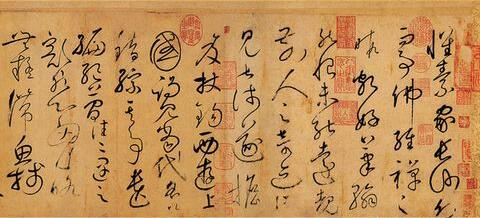 懷素家長沙幼
而事佛經禪之
暇頗好筆翰
然恨未能遠覩
前人之奇迹所
見甚淺遂擔
笈杖錫西遊上
國謁見當代名公
錯綜其事遺
編絶簡往往遇之
豁然心胸略
無疑滯魚牋